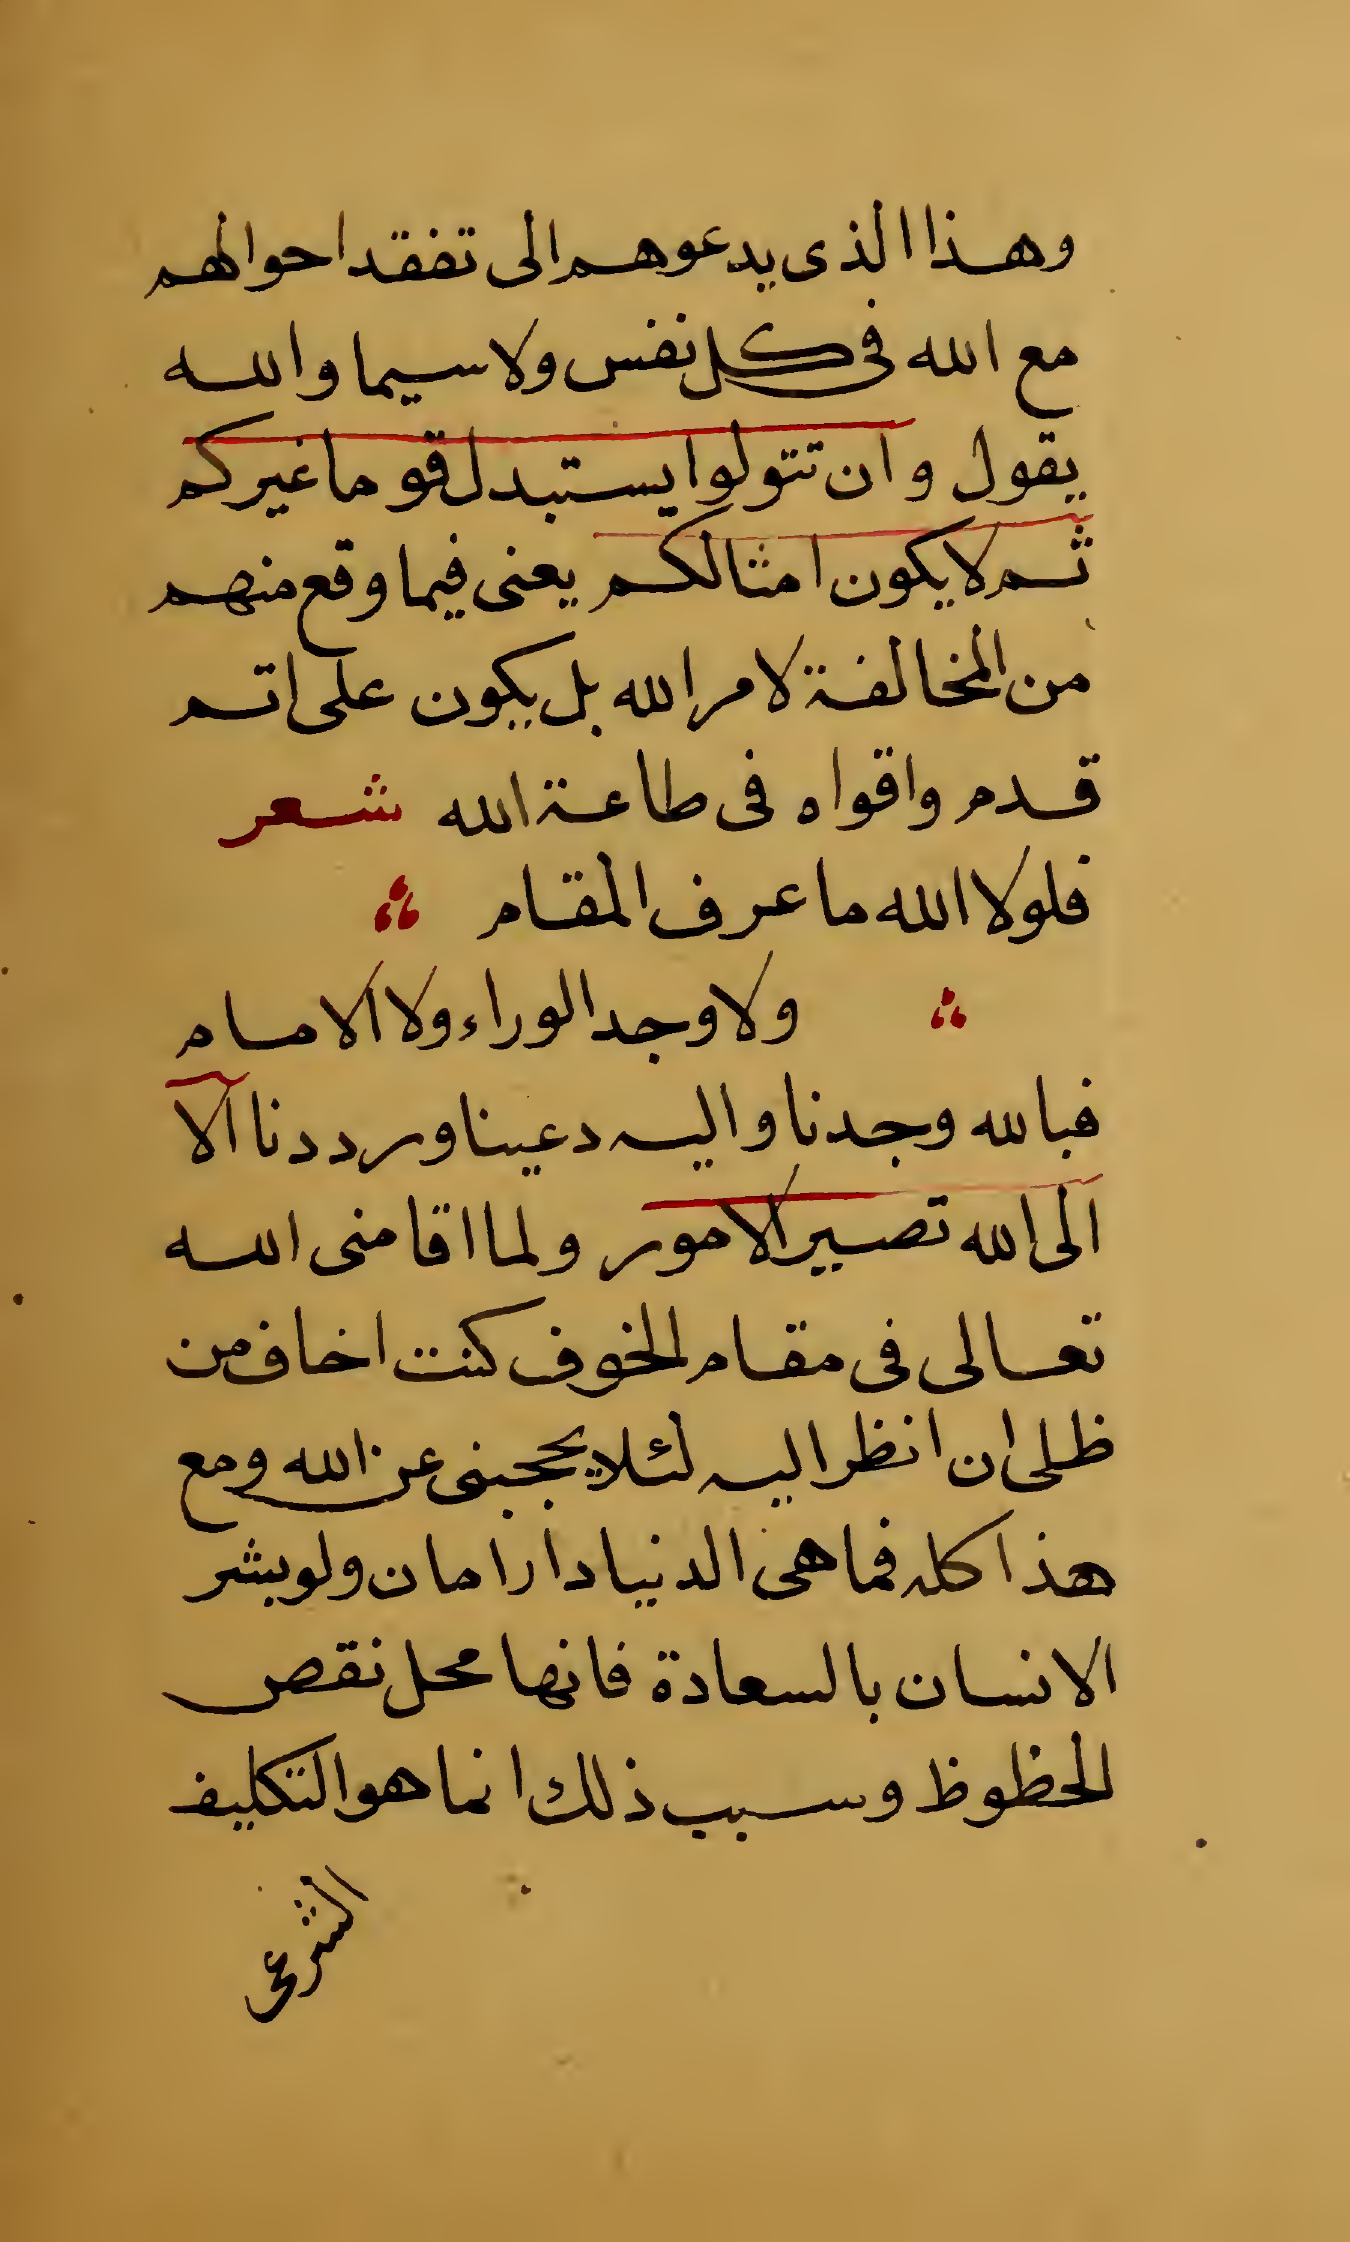 وهذا الذى يدعوهم الى تفقد احوالهم
مع الله فى كل نفس ولا سيما والله
يقول وان تتولوا يستبدل قوما غيركم
ثم لا يكون امثالكم يعنى فيما وقع منهم
من المخالفة لامر الله بل يكون على اتم
قدم واقواه فى طاعة الله شعر
فلولا الله ما عرف المقام
ولا وجد الوراء ولا الامام
فبالله وجدنا واليه دعينا ورددنا الا
الى الله تصير الامور ولما اقامنى الله
تعالى فى مقام الخوف كنت اخاف من
ظلى ان انظر اليه لئلا يحجبنى عن الله ومع
هذا كله فما هى الدنيا دار امان ولو بشر
الانسان بالسعادة فانها محل نقص
الحظوظ وسبب ذلك انما هو التكليف
الشرعى